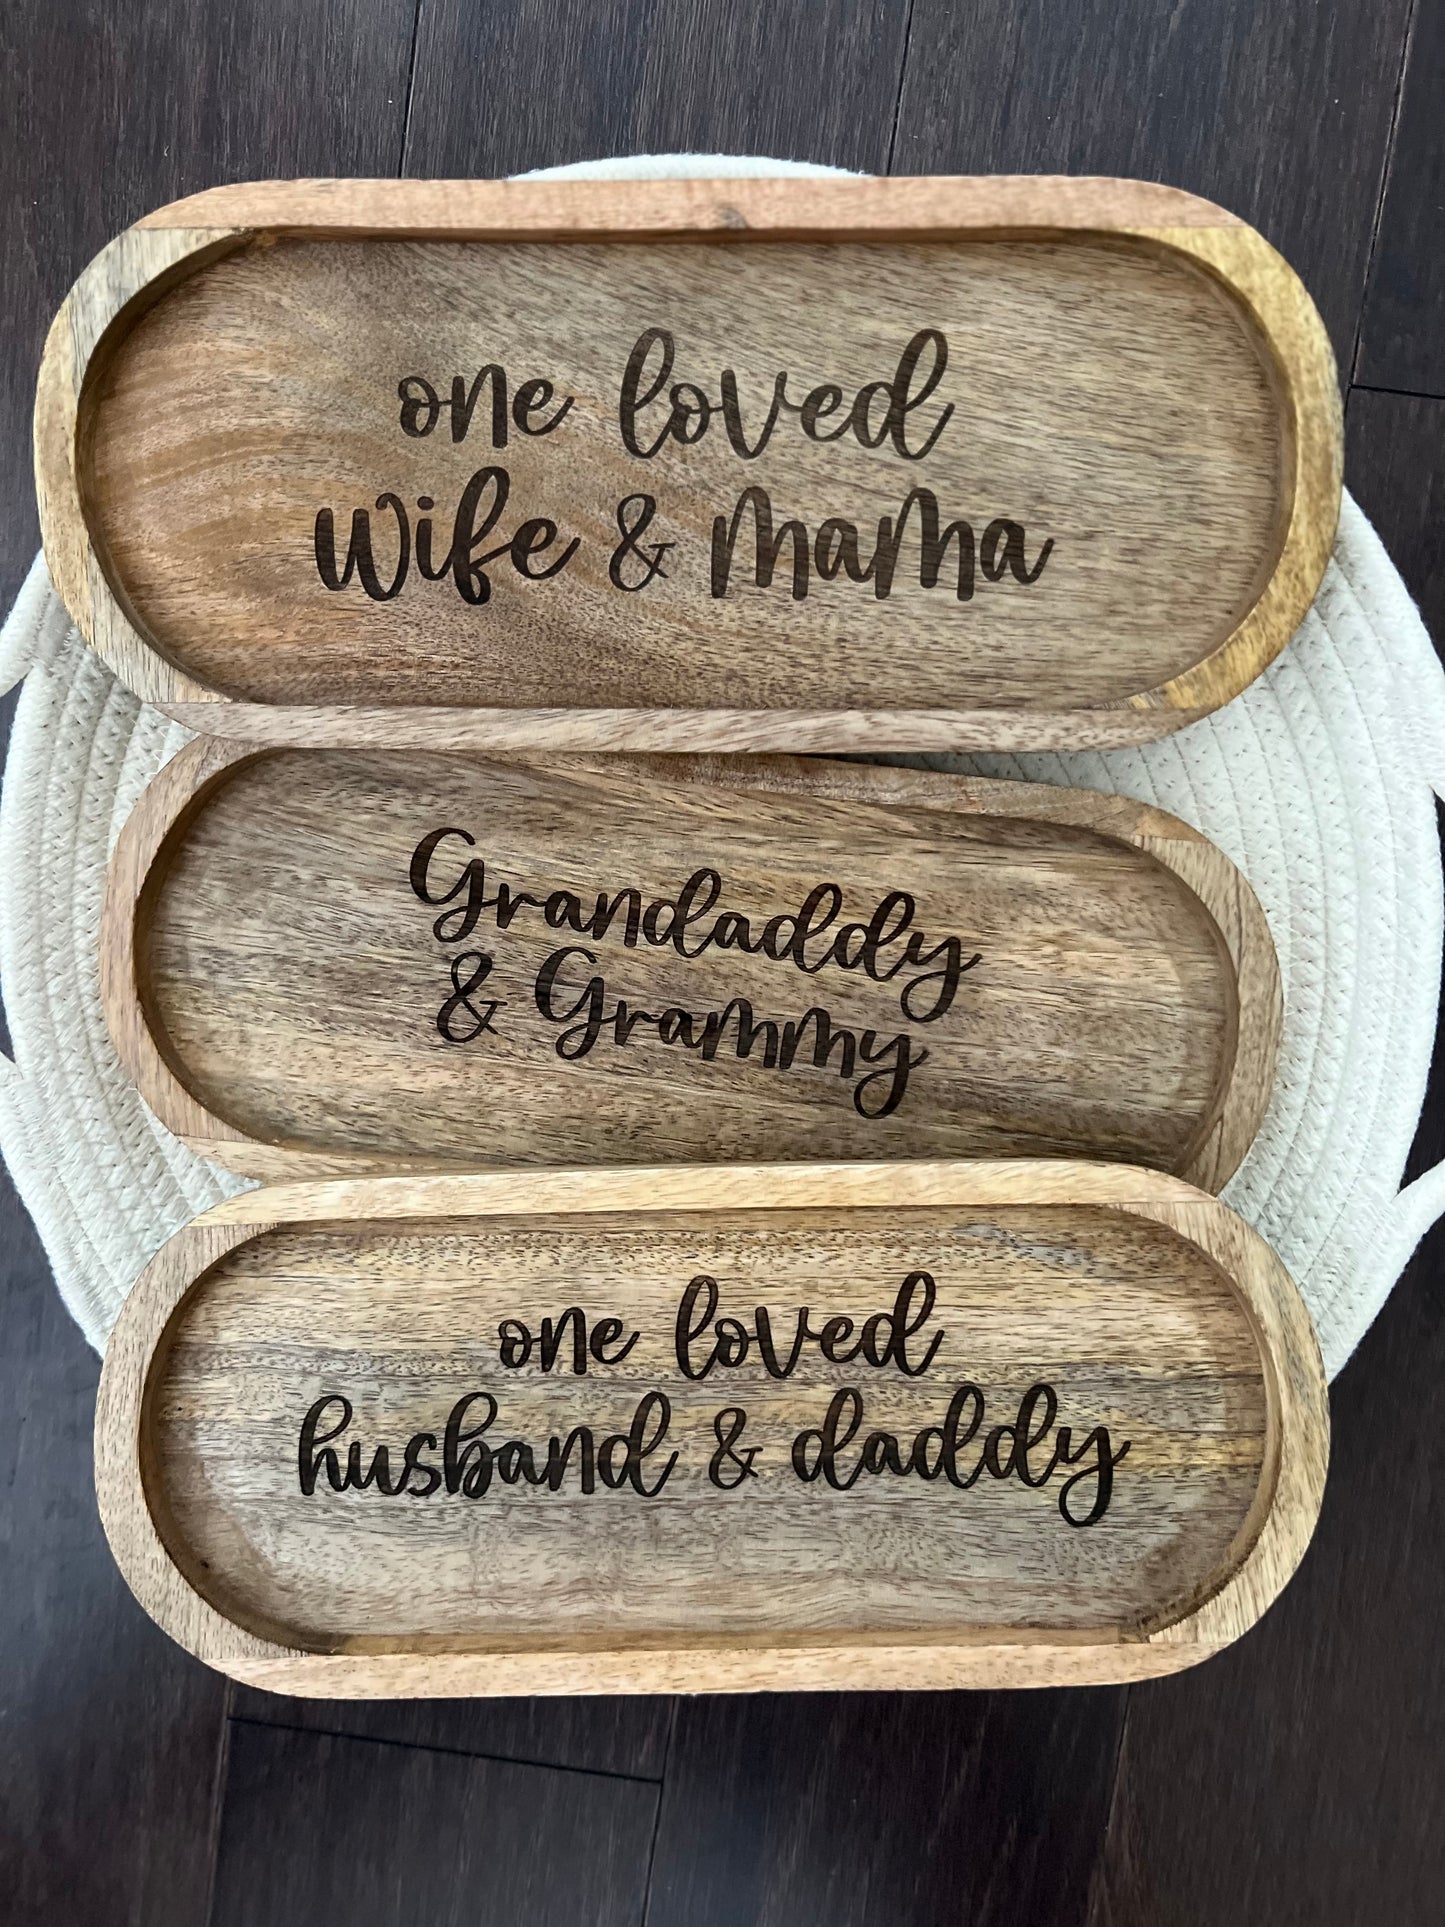 one loved
wife & mama
Grandaddy
& Grammy
one loved
husband & daddy